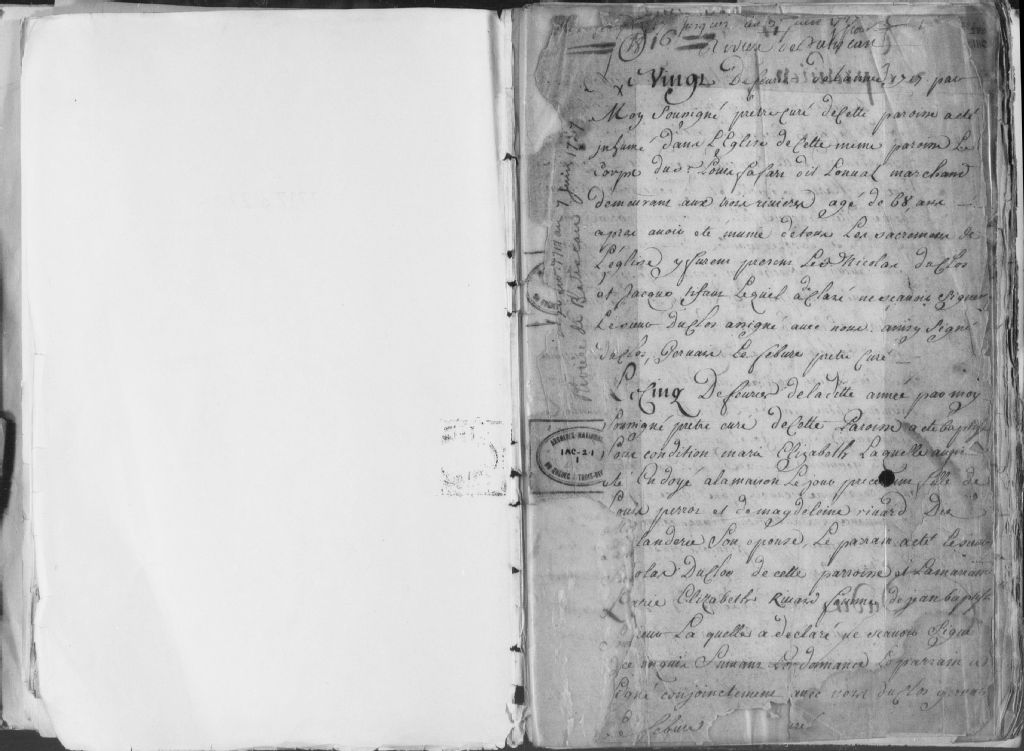 16
Riviere de Batiscan
Le Vingt De feurier de l'année 1717 par
Moy Soussigné pretre curé de Cette paroisse a eté
jnhumé dans L'Eglise de Cette meme paroisse Le
Corps du Sr Louis fafare dit Lonual marchand
demeurant aux trois rivieres agé de 68 ans
apres auoir eté munie de tous Les sacremens de
L'eglise y furent presens Les Nicolas duClos
et Jacques Lequel a declaré ne scauoir Signer
Le sieur DuClos a signé auec nous ainsy Signé
duClos, Geruais Le febure pretre curé
Le Cinq De feurier de la ditte année par moy
Soussigné pretre curé de Cette Paroisse a eté baptisé
Sous condition marie Elizabeth Laquelle auoit
eté Endoyé a la maison Le jour precedent fille de
Louis perrot et de magdeleine riuard De
landerie Son epouse, Le parain a eté Le sieur
olas DuClos de cette parroisse et La maraine
marie Elizabeth Riuard femme de jean baptiste
La quelle a declaré ne scauoir Signé
ce requis Suiuant L'ordonnance Le parrain a
signé conjoinctement auec nous duClos
Le febure curé
Riviere de Batiscan
7 juin 1727
ARCHIVES NATIONALES
1AC-2-1
1
DU QUEBEC A TROIS-RIV